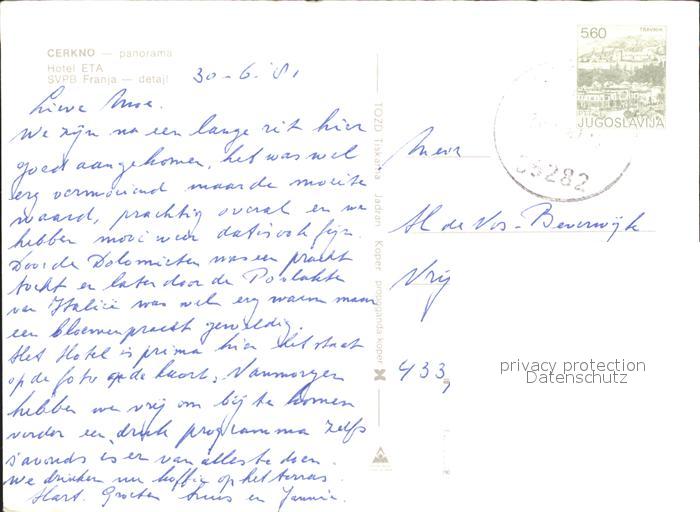 CERKNO — panorama
Hotel ETA
SVPB Franja — detajl
30-6-'81
Lieve Moe.
We zijn na een lange rit hier
goed aangekomen, het was wel
erg vermoeiend maar de moeite
waard, prachtig overal en we
hebben mooi weer dat is ook fijn.
Door de Dolomieten was een pracht
tocht en later door de Povlakte
van Italië was wel erg warm maar
een bloemenpracht geweldig.
Het Hotel is prima hier het staat
op de foto op de kaart. Vanmorgen
hebben we vrij om bij te komen
verder een druk programma zelfs
s'avonds is er van alles te doen.
We drinken nu koffie op het terras.
Hart. Groeten Truus en Jannie.
TOZD Tiskarna Jadran Koper propaganda koper
560
TRAVNIK
JUGOSLAVIJA
65282
Mevr
de Vos-Beverwijk
Vrij
433,
privacy protection
Datenschutz